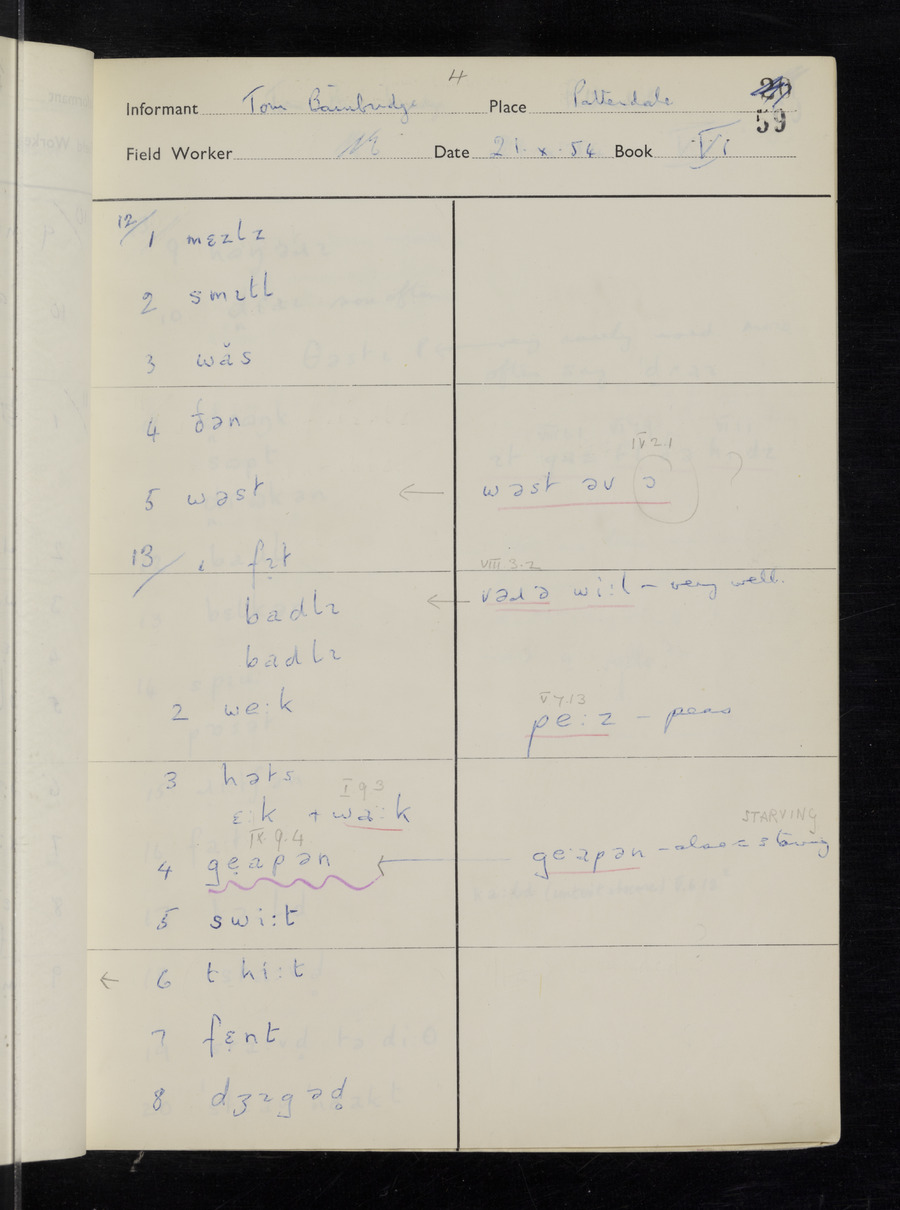 4
Informant Tom Bainbridge Place Patterdale
59
Field Worker Date 21.x.54 Book VI
12/ 1 mɛzlz
2 smɪtl
3 wăs
4 ðən
IV 2.1
5 wəst ← wəst əv ə ?
13/ 1 fɪt
VIII.3.2
badlɪ ← vəɹə wi:l – very well.
badlɪ
2 we:k
V 7.13
pe:z – peas
3 həts
I 9 3
ɛ:k + wa:k
IX.9.4
STARVING
4 geapən ← geapən – also = starving
5 swi:t
← 6 thi:t
7 fɛnt
8 dʒɪgəd̥